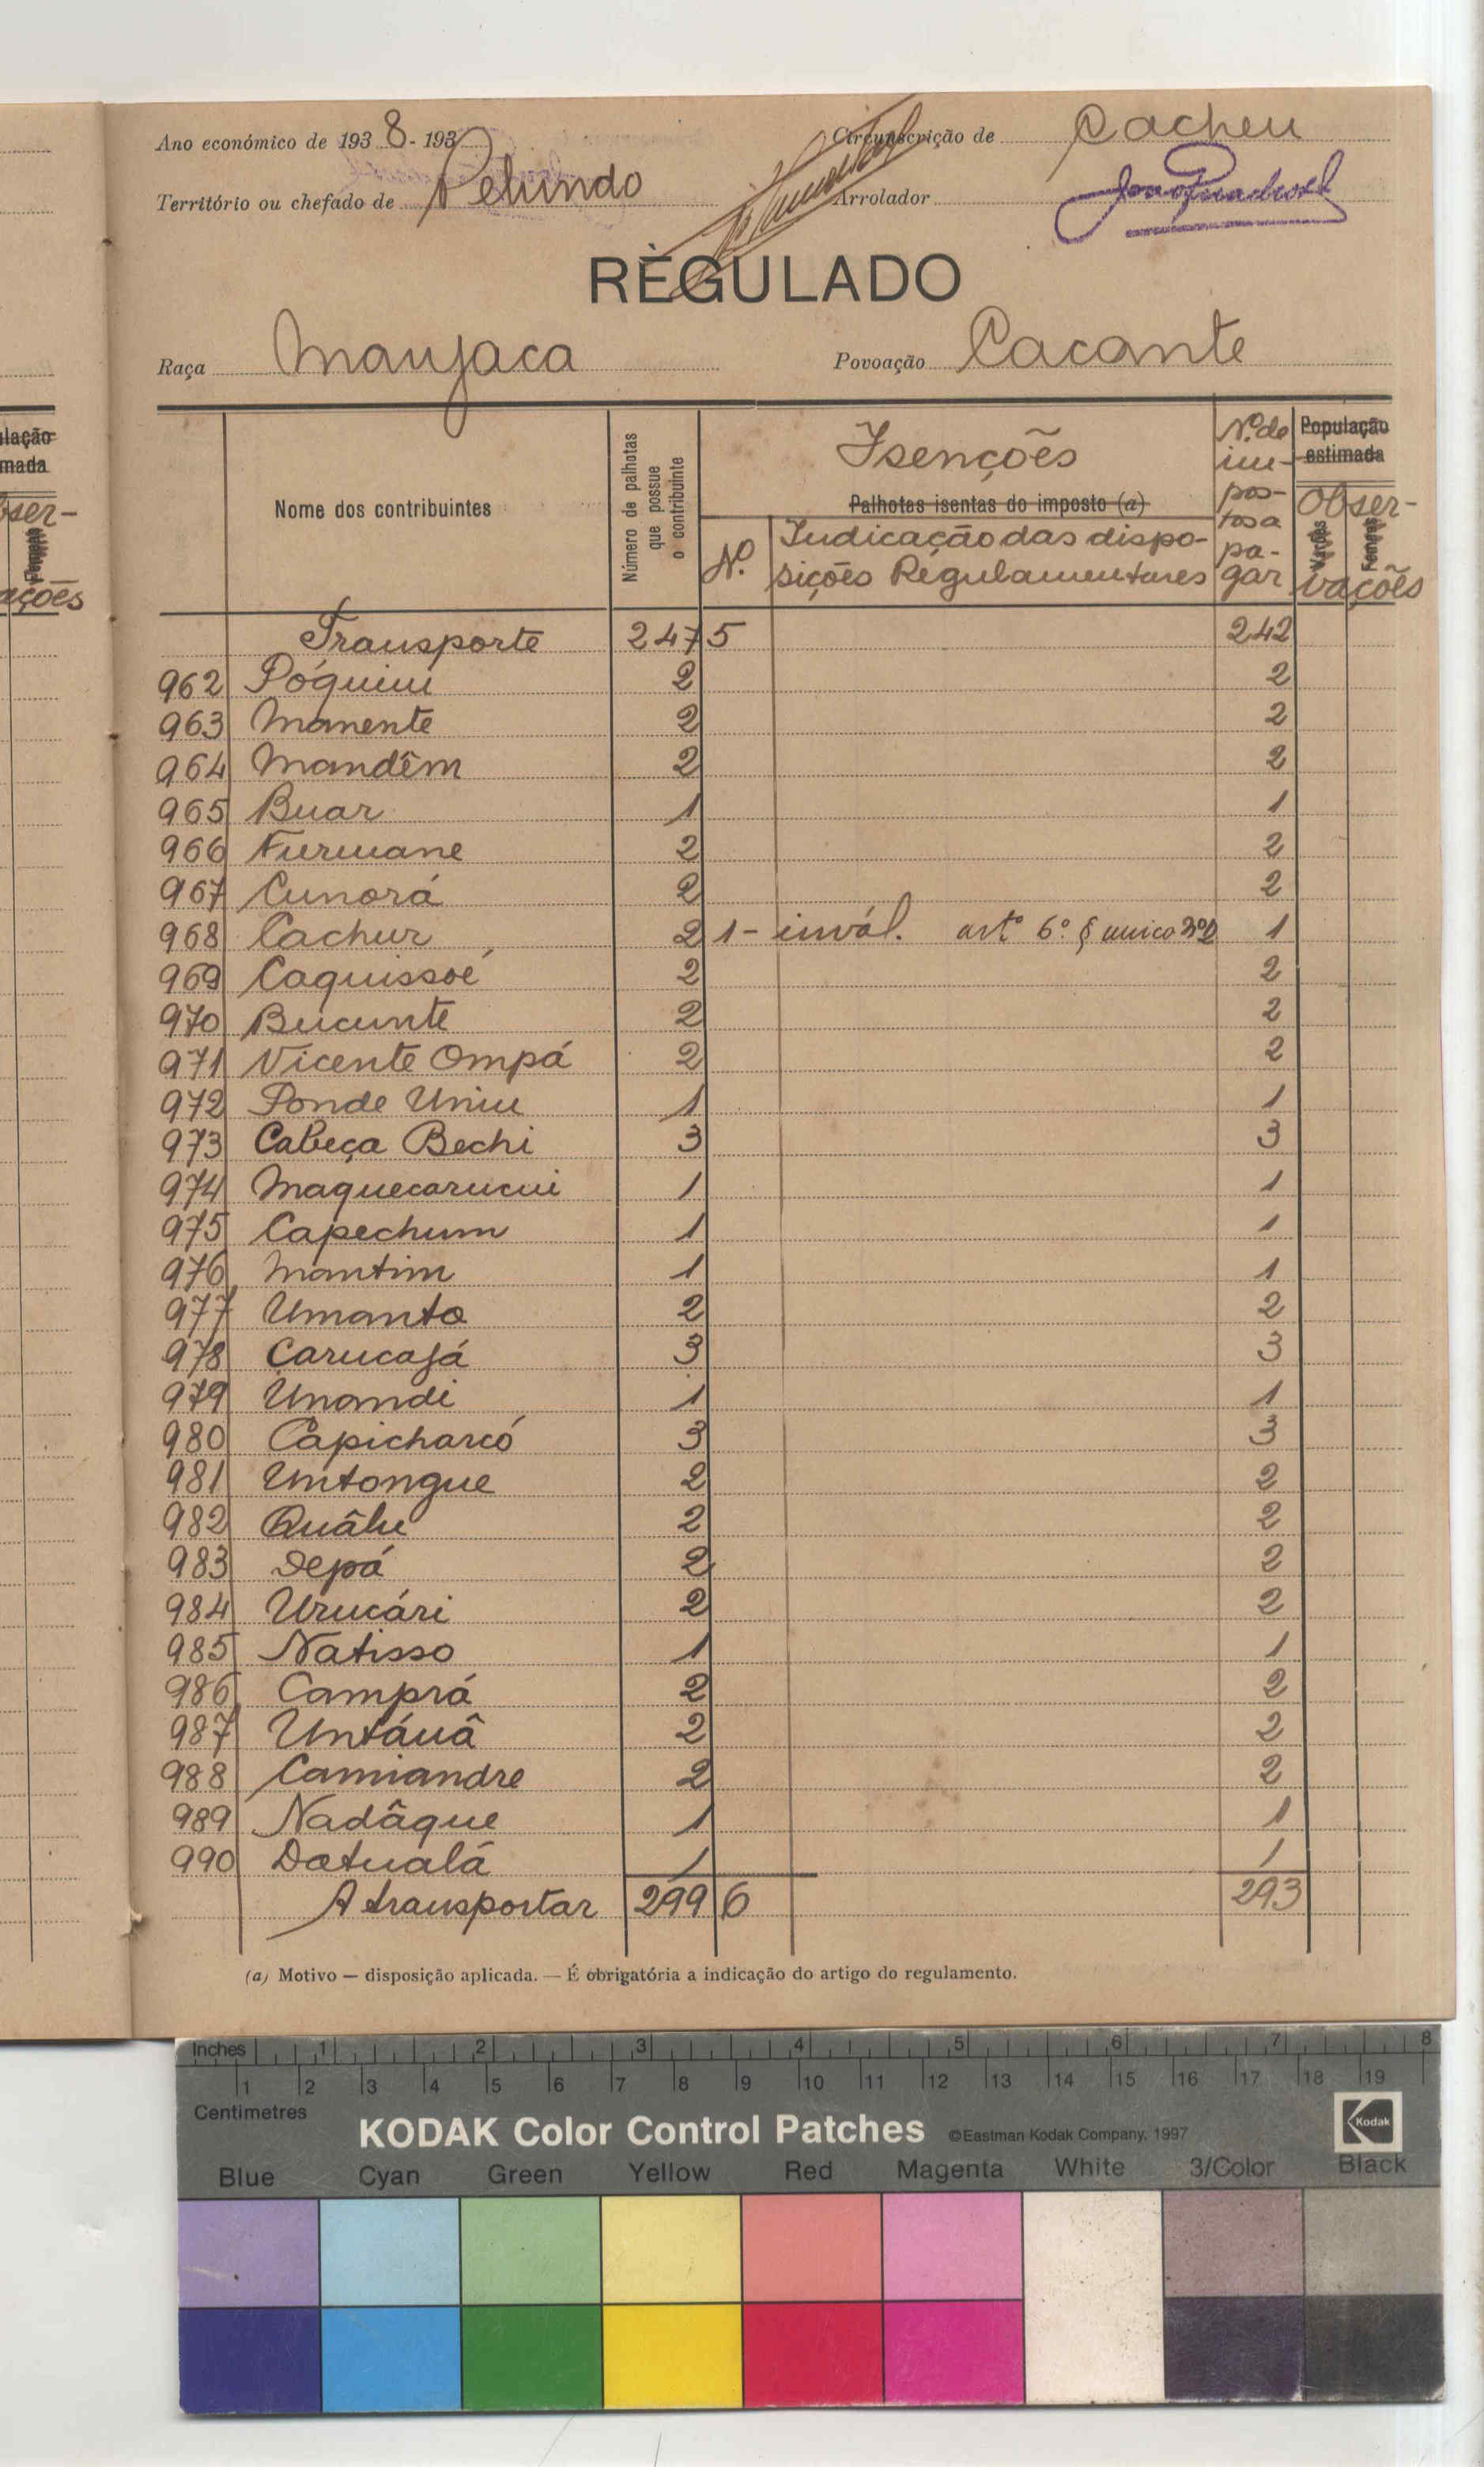 Ano económico de 193 8 - 193
Circunscrição de Cacheu
Território ou chefado de Pelundo
Arrolador
REGULADO
Raça Manjaca
Povoação Cacante
Nome dos contribuintes
Número de palhotas que possue o contribuinte
Isenções
Palhotas isentas do imposto (a)
Nº.
Indicação das dispo-
sições Regulamentares
Nº. de
im-
pos-
tos a
pa-
gar
População
estimada
Obser-
Varões Femeas
vações
lação
mada
ser-
Femeas
ações
Transporte 247 5 242
962 Póquim 2 2
963 Manente 2 2
964 Mandêm 2 2
965 Buar 1 1
966 Furmane 2 2
967 Cunorá 2 2
968 Cachur 2 1 - invál. artº 6º § unico nº 2 1
969 Caquissoé 2 2
970 Bucunte 2 2
971 Vicente Ompá 2 2
972 Ponde Uniu 1 1
973 Cabeça Bechi 3 3
974 Maquecarucui 1 1
975 Capechum 1 1
976 Mantim 1 1
977 Umanta 2 2
978 Carucajá 3 3
979 Unandi 1 1
980 Capicharcó 3 3
981 Untongue 2 2
982 Quâlu 2 2
983 Depá 2 2
984 Urucári 2 2
985 Natisso 1 1
986 Camprá 2 2
987 Untáuâ 2 2
988 Camiandre 2 2
989 Nadâque 1 1
990 Datualá 1 1
A transportar 299 6 293
(a) Motivo — disposição aplicada. — É obrigatória a indicação do artigo do regulamento.
Inches 1 2 3 4 5 6 7 8
1 2 3 4 5 6 7 8 9 10 11 12 13 14 15 16 17 18 19
Centimetres
KODAK Color Control Patches ©Eastman Kodak Company, 1997 Kodak
Blue Cyan Green Yellow Red Magenta White 3/Color Black